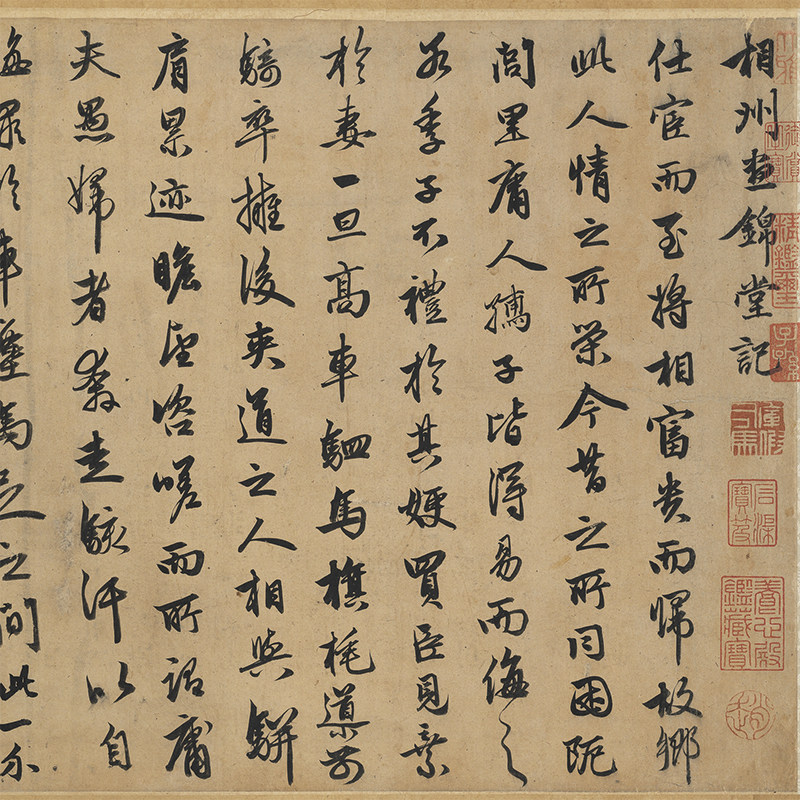 相州晝錦堂記
仕宦而至將相富貴而歸故鄉
此人情之所榮今昔之所同困阨
閭里庸人孺子皆得易而侮之
若季子不禮於其嫂買臣見棄
於妻一旦高車駟馬旗旄導前
騎卒擁後夾道之人相與駢
肩累迹瞻望咨嗟而所謂庸
夫愚婦者奔走駭汗以自
罪於車塵馬足之間此一介
石渠寶笈
養心殿鑑藏寶